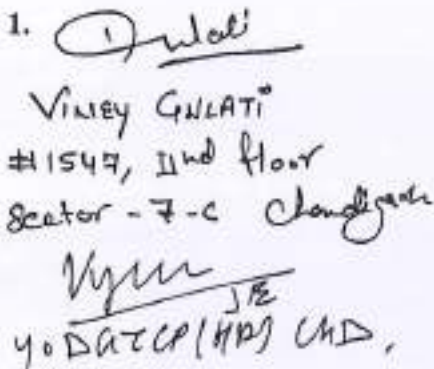 1. Gulati
VINEY GULATI
#1547, IInd floor
Sector - 7-C Chandigarh
JE
CHD.